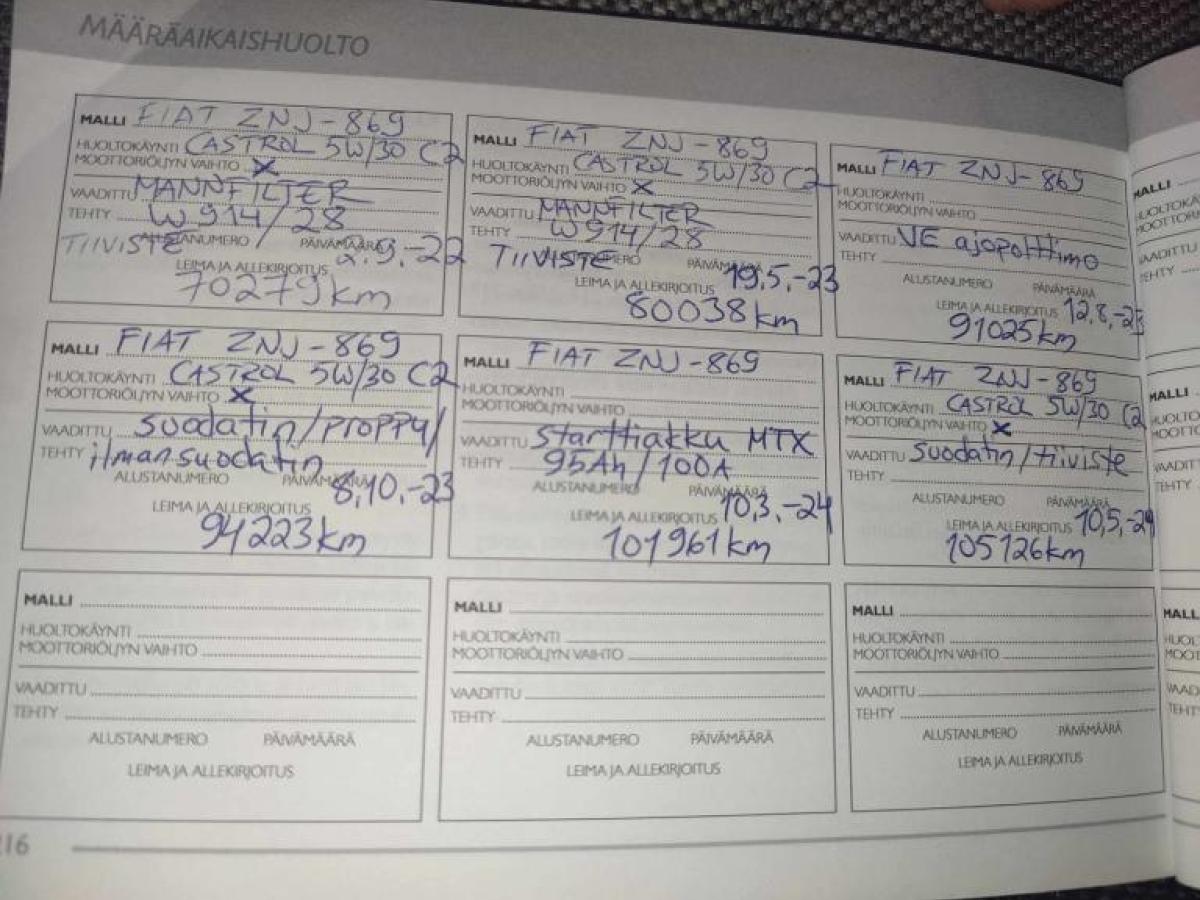 MÄÄRÄAIKAISHUOLTO
MALLI FIAT ZNJ-869
HUOLTOKÄYNTI CASTROL 5W/30 C2
MOOTTORIÖLJYN VAIHTO X
VAADITTU MANNFILTER
TEHTY W914/28
TIIVISTE ALUSTANUMERO PÄIVÄMÄÄRÄ 2.9.-22
LEIMA JA ALLEKIRJOITUS
70279km
MALLI FIAT ZNJ-869
HUOLTOKÄYNTI CASTROL 5W/30 C2
MOOTTORIÖLJYN VAIHTO X
VAADITTU MANNFILTER
TEHTY W914/28
TIIVISTE ALUSTANUMERO PÄIVÄMÄÄRÄ 19.5.-23
LEIMA JA ALLEKIRJOITUS
80038km
MALLI FIAT ZNJ-869
HUOLTOKÄYNTI
MOOTTORIÖLJYN VAIHTO
VAADITTU VE ajopolttimo
TEHTY
ALUSTANUMERO PÄIVÄMÄÄRÄ
LEIMA JA ALLEKIRJOITUS 12.8.-23
91025km
MALLI FIAT ZNJ-869
HUOLTOKÄYNTI CASTROL 5W/30 C2
MOOTTORIÖLJYN VAIHTO X
VAADITTU suodatin/proppu/
TEHTY ilmansuodatin
ALUSTANUMERO PÄIVÄMÄÄRÄ 8.10.-23
LEIMA JA ALLEKIRJOITUS
94223km
MALLI FIAT ZNJ-869
HUOLTOKÄYNTI
MOOTTORIÖLJYN VAIHTO
VAADITTU starttiakku MTX
TEHTY 95Ah/100A
ALUSTANUMERO PÄIVÄMÄÄRÄ
LEIMA JA ALLEKIRJOITUS 10.3.-24
101961km
MALLI FIAT ZNJ-869
HUOLTOKÄYNTI CASTROL 5W/30 C2
MOOTTORIÖLJYN VAIHTO X
VAADITTU suodatin/tiiviste
TEHTY
ALUSTANUMERO PÄIVÄMÄÄRÄ
LEIMA JA ALLEKIRJOITUS 10.5.-24
105126km
MALLI
HUOLTOKÄYNTI
MOOTTORIÖLJYN VAIHTO
VAADITTU
TEHTY
ALUSTANUMERO PÄIVÄMÄÄRÄ
LEIMA JA ALLEKIRJOITUS
MALLI
HUOLTOKÄYNTI
MOOTTORIÖLJYN VAIHTO
VAADITTU
TEHTY
ALUSTANUMERO PÄIVÄMÄÄRÄ
LEIMA JA ALLEKIRJOITUS
MALLI
HUOLTOKÄYNTI
MOOTTORIÖLJYN VAIHTO
VAADITTU
TEHTY
ALUSTANUMERO PÄIVÄMÄÄRÄ
LEIMA JA ALLEKIRJOITUS
216